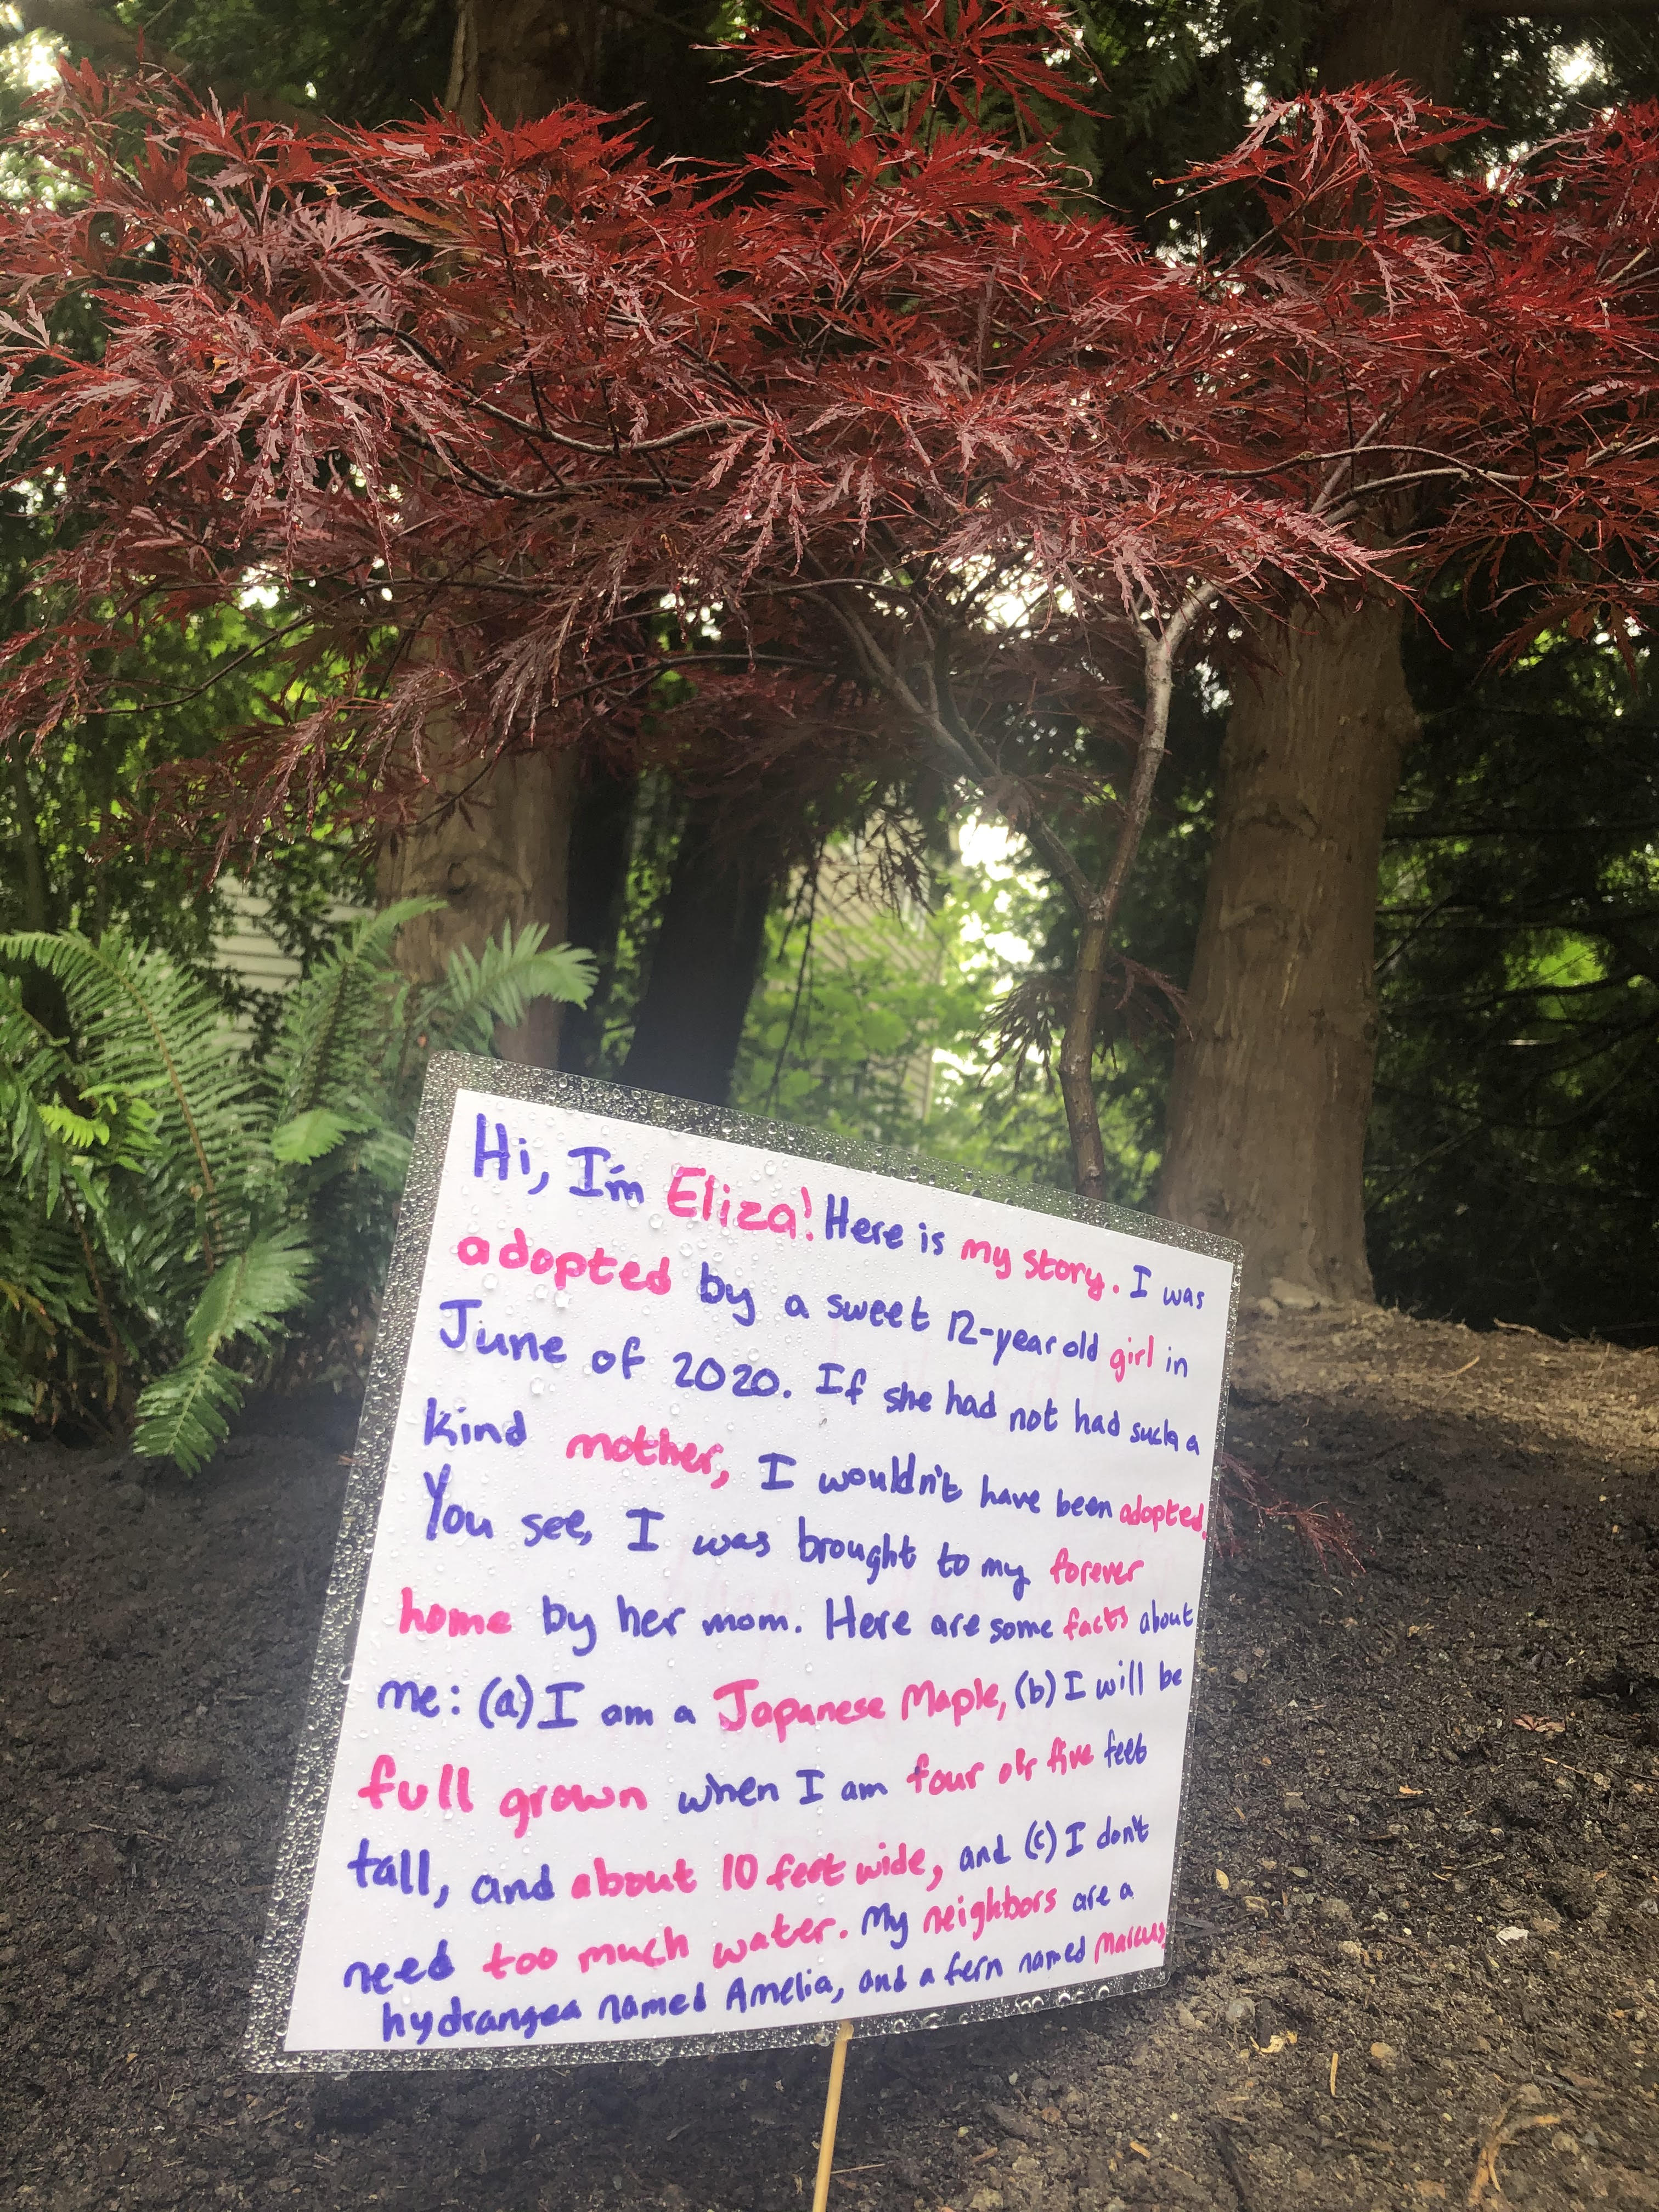 Hi, I'm Eliza! Here is my story. I was
adopted by a sweet 12-year old girl in
June of 2020. If she had not had such a
kind mother, I wouldn't have been adopted.
You see, I was brought to my forever
home by her mom. Here are some facts about
me: (a) I am a Japanese Maple, (b) I will be
full grown when I am four or five feet
tall, and about 10 feet wide, and (c) I don't
need too much water. My neighbors are a
hydrangea named Amelia, and a fern named Marcus.